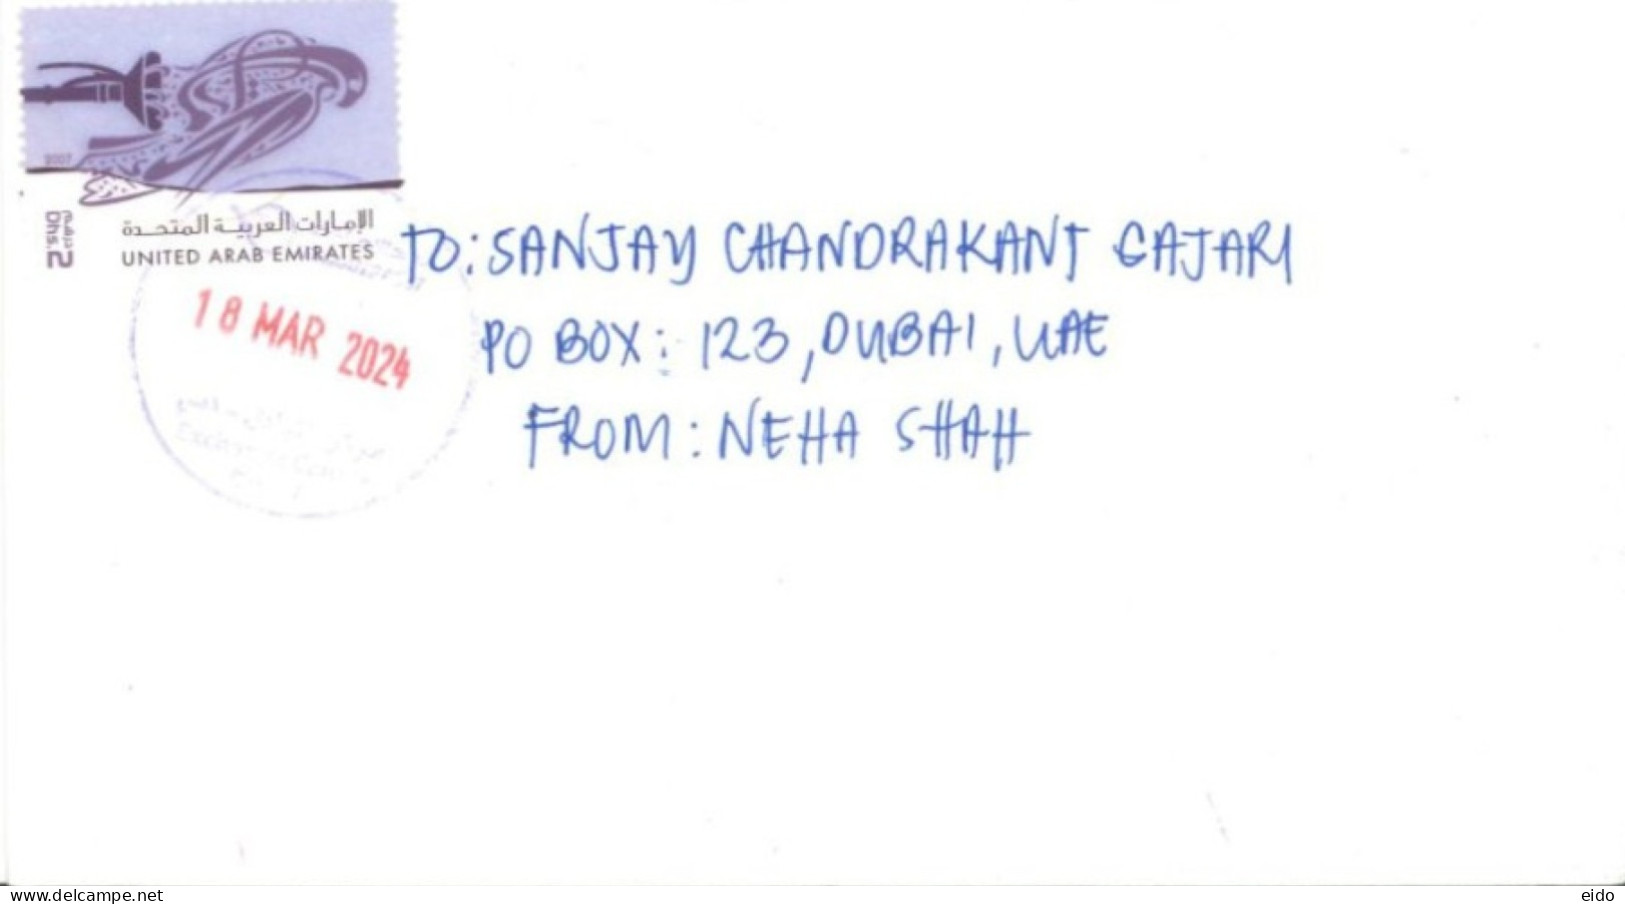 2007
2 درهم
Dhs.2
الإمارات العربية المتحدة
UNITED ARAB EMIRATES
18 MAR 2024
TO: SANJAY CHANDRAKANT GAJARI
PO BOX: 123, DUBAI, UAE
FROM: NEHA SHAH
www.delcampe.net
eido